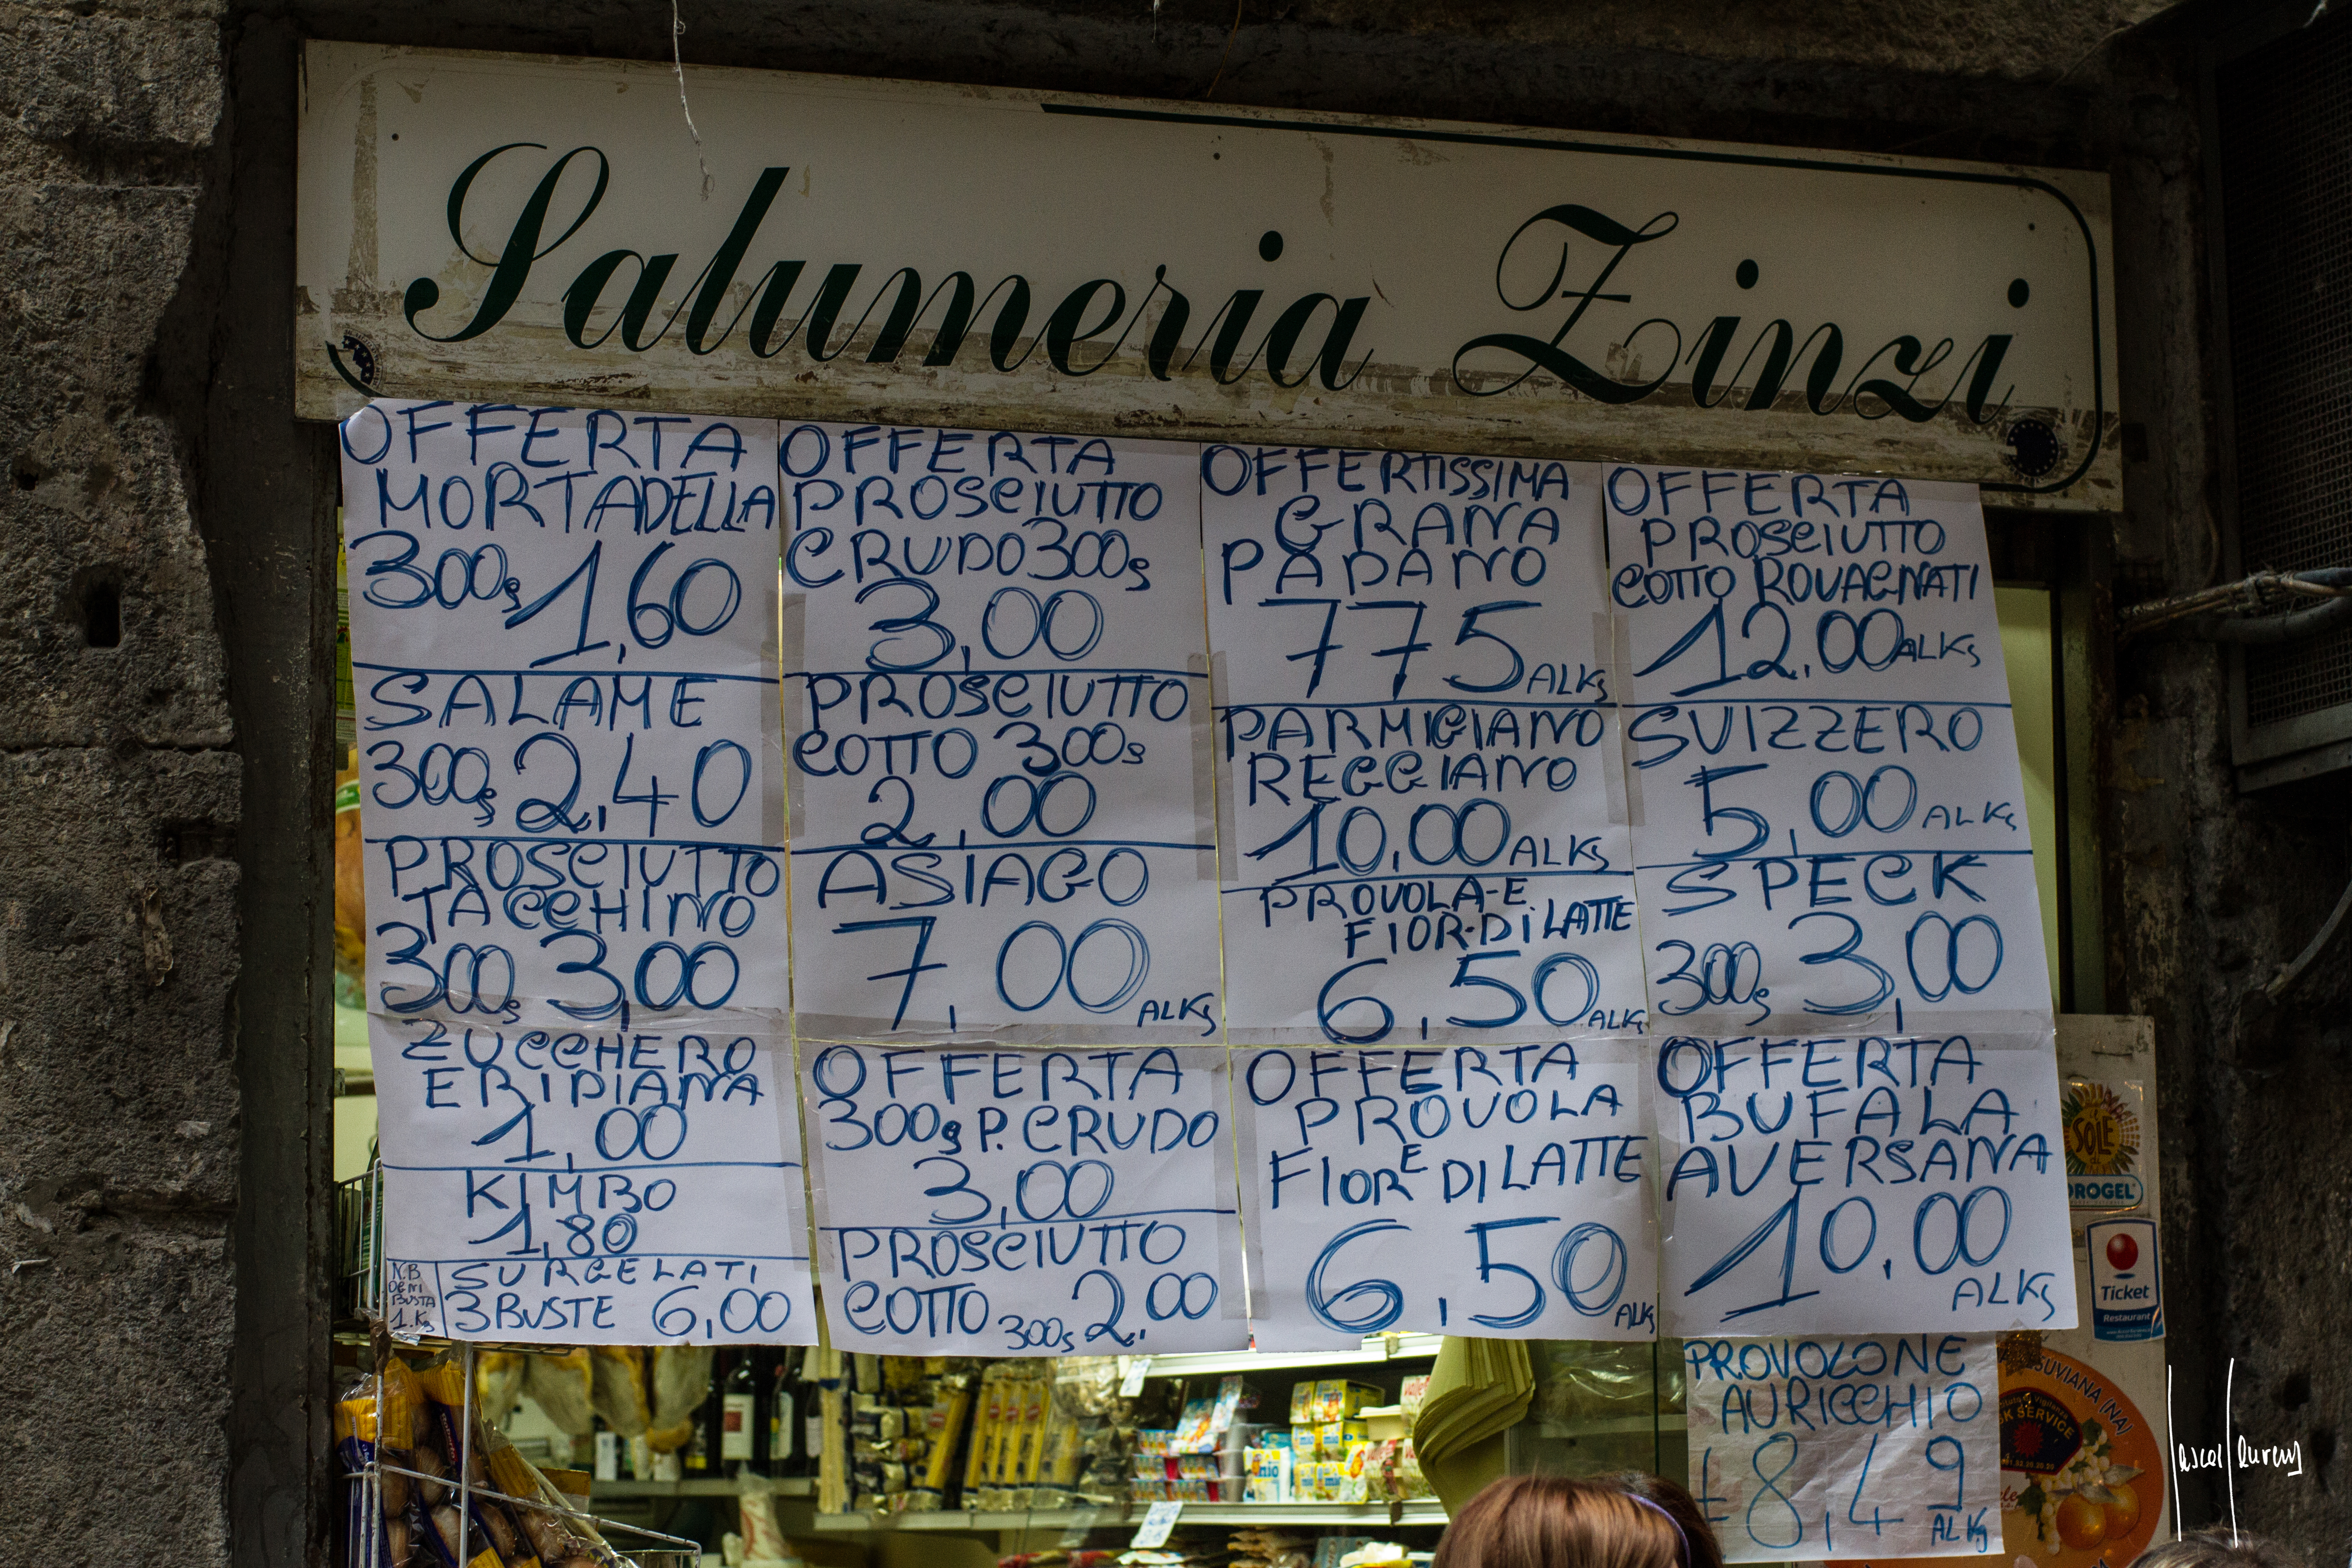 Salumeria Zinzi
OFFERTA
MORTADELLA
300g 1,60
SALAME
300g 2,40
PROSCIUTTO
TACCHINO
300g 3,00
ZUCCHERO
ERIDIANA
1,00
KIMBO
1,80
N.B.
DENI
BUSTA
1.Kg
SURGELATI
3 BUSTE 6,00
OFFERTA
PROSCIUTTO
CRUDO 300g
3,00
PROSCIUTTO
COTTO 300g
2,00
ASIAGO
7,00
ALKg
OFFERTA
300g P. CRUDO
3,00
PROSCIUTTO
COTTO 300g 2,00
OFFERTISSIMA
GRANA
PADANO
775 ALKg
PARMIGIANO
REGGIANO
10,00 ALKg
PROVOLA-E
FIOR-DI LATTE
6,50 ALKg
OFFERTA
PROVOLA
E
FIOR DI LATTE
6,50 ALKg
OFFERTA
PROSCIUTTO
COTTO ROVAGNATI
12,00 ALKg
SVIZZERO
5,00 ALKg
SPECK
300g 3,00
OFFERTA
BUFALA
AVERSANA
10,00
ALKg
PROVOLONE
AURICCHIO
€8,49
ALKg
SOLE
di
OROGEL
Ticket
Restaurant
SUVIANA (NA)
SK SERVICE